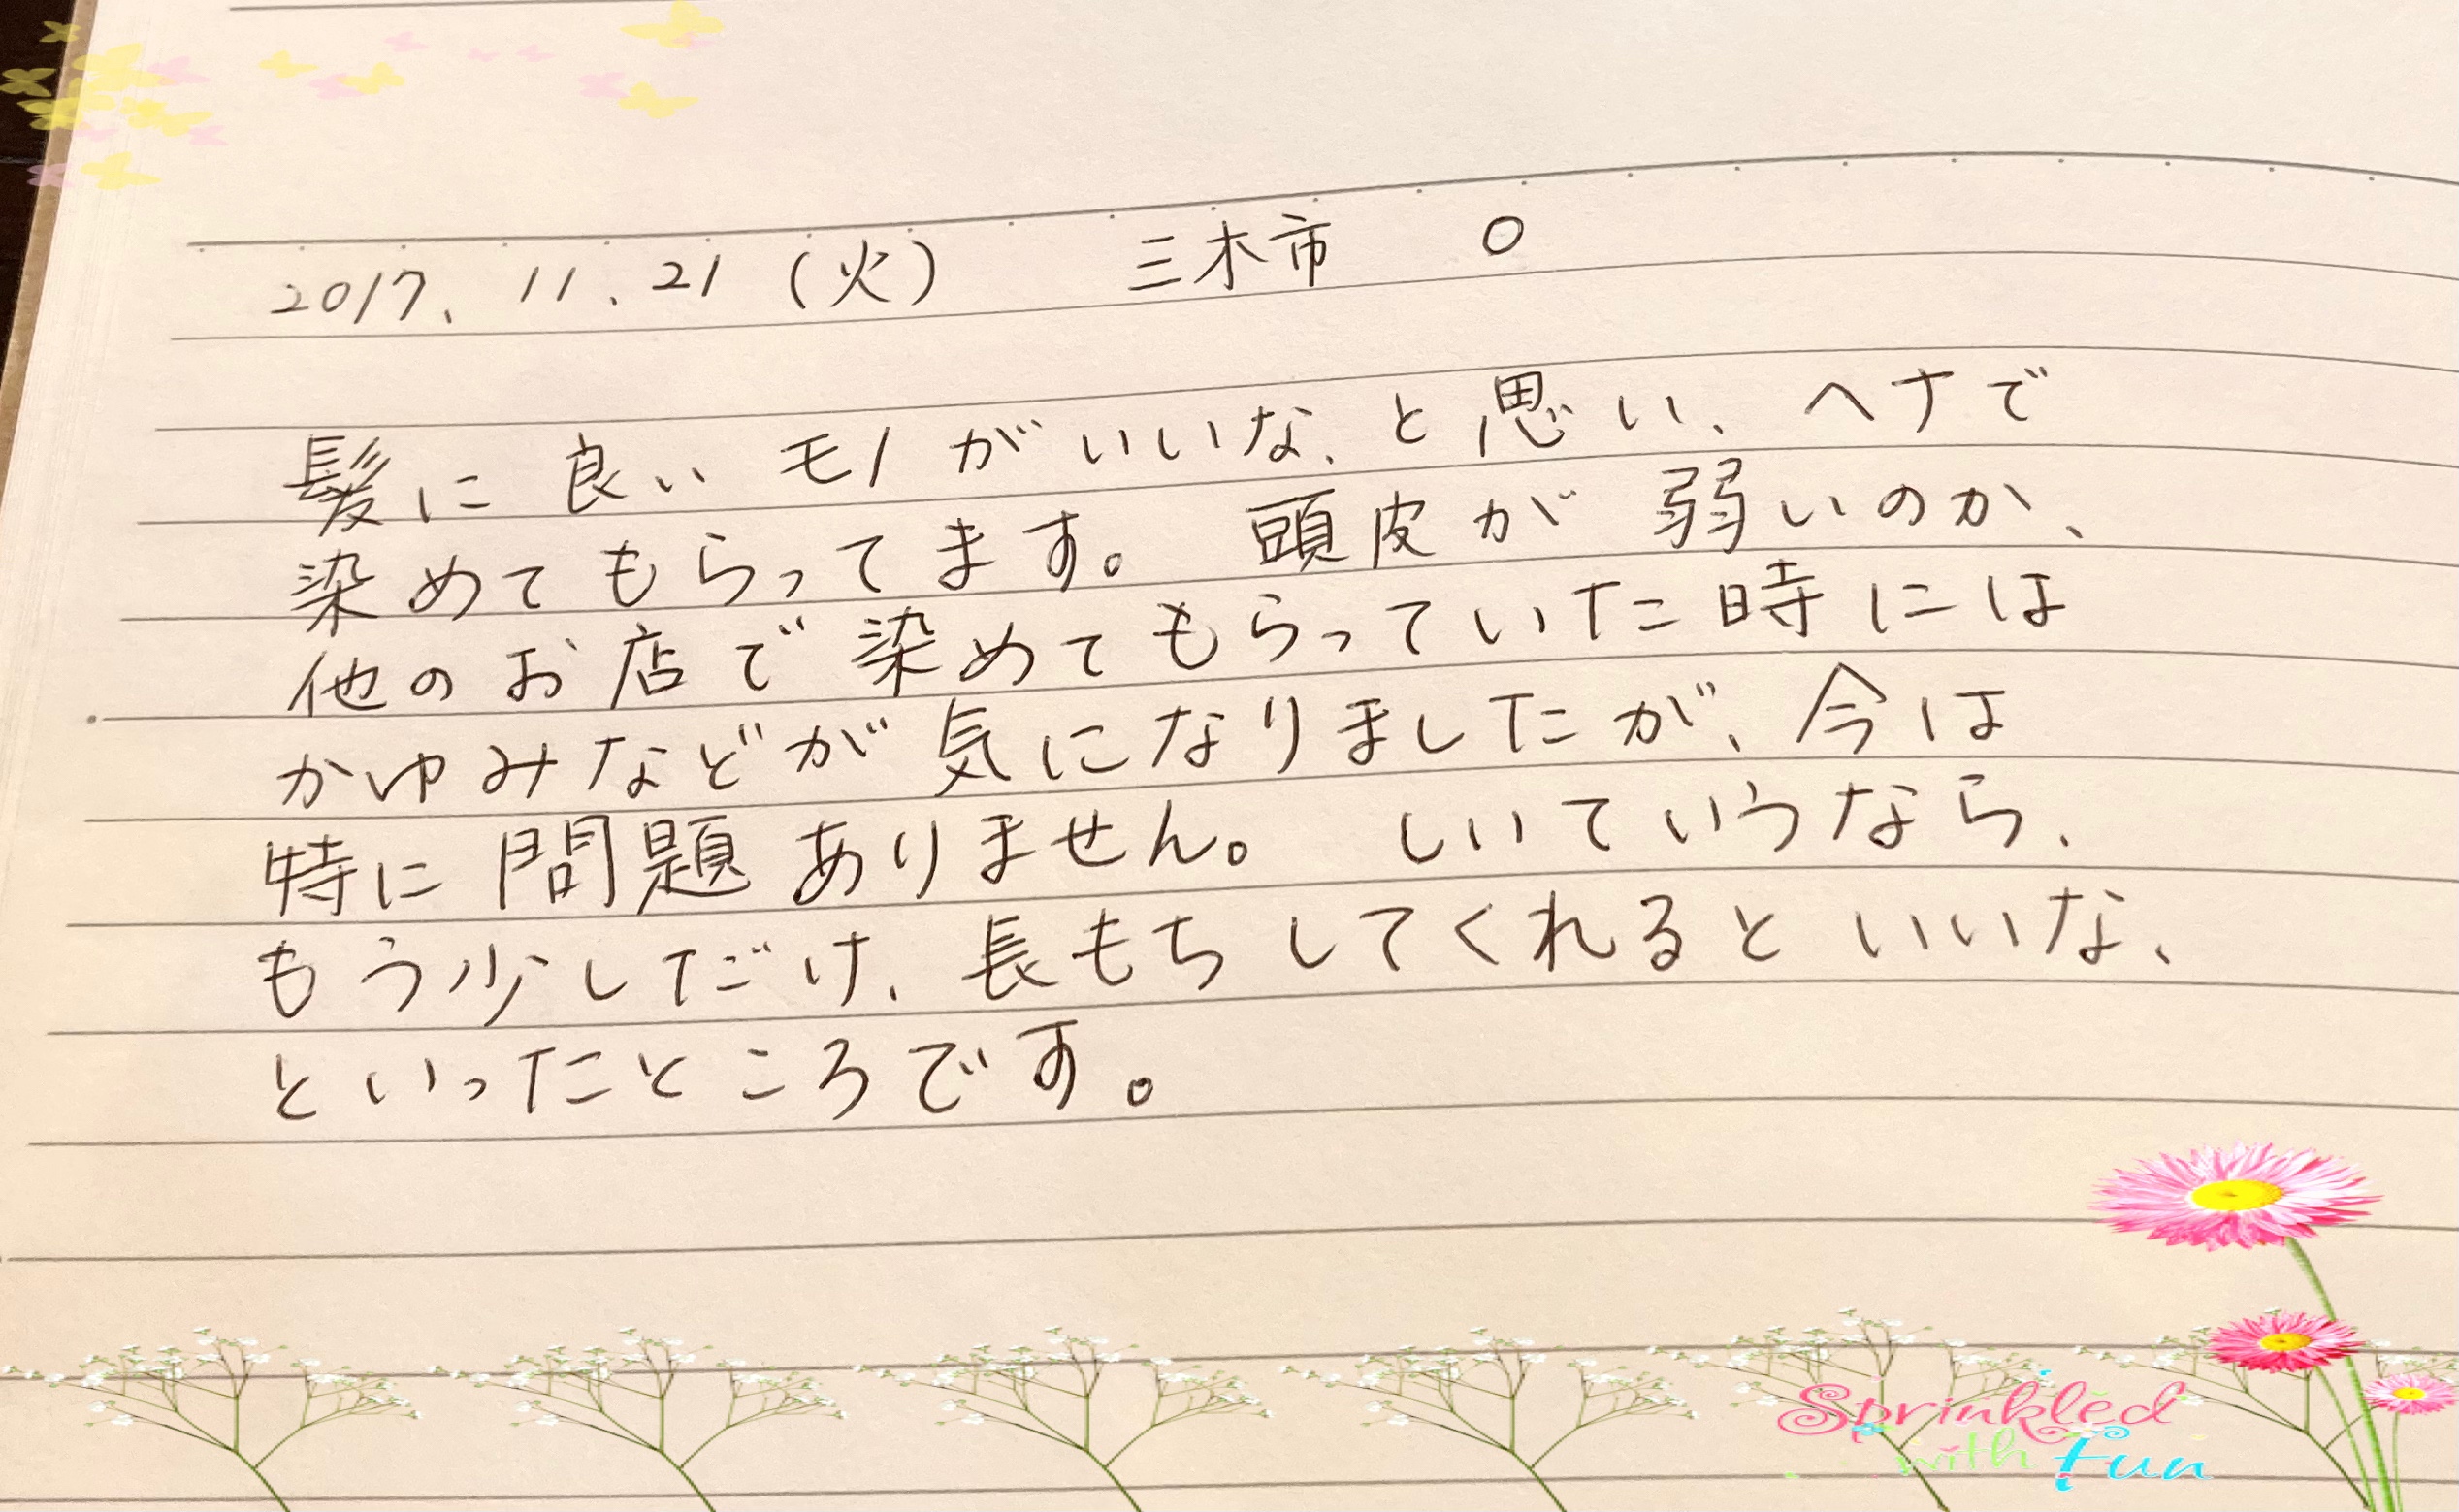 2017. 11. 21 (火) 三木市 O
髪に良いモノがいいな、と思い、ヘナで
染めてもらってます。頭皮が弱いのか、
他のお店で染めてもらっていた時には
かゆみなどが気になりましたが、今は
特に問題ありません。しいていうなら、
もう少しだけ、長もちしてくれるといいな、
といったところです。
Sprinkled
with Fun